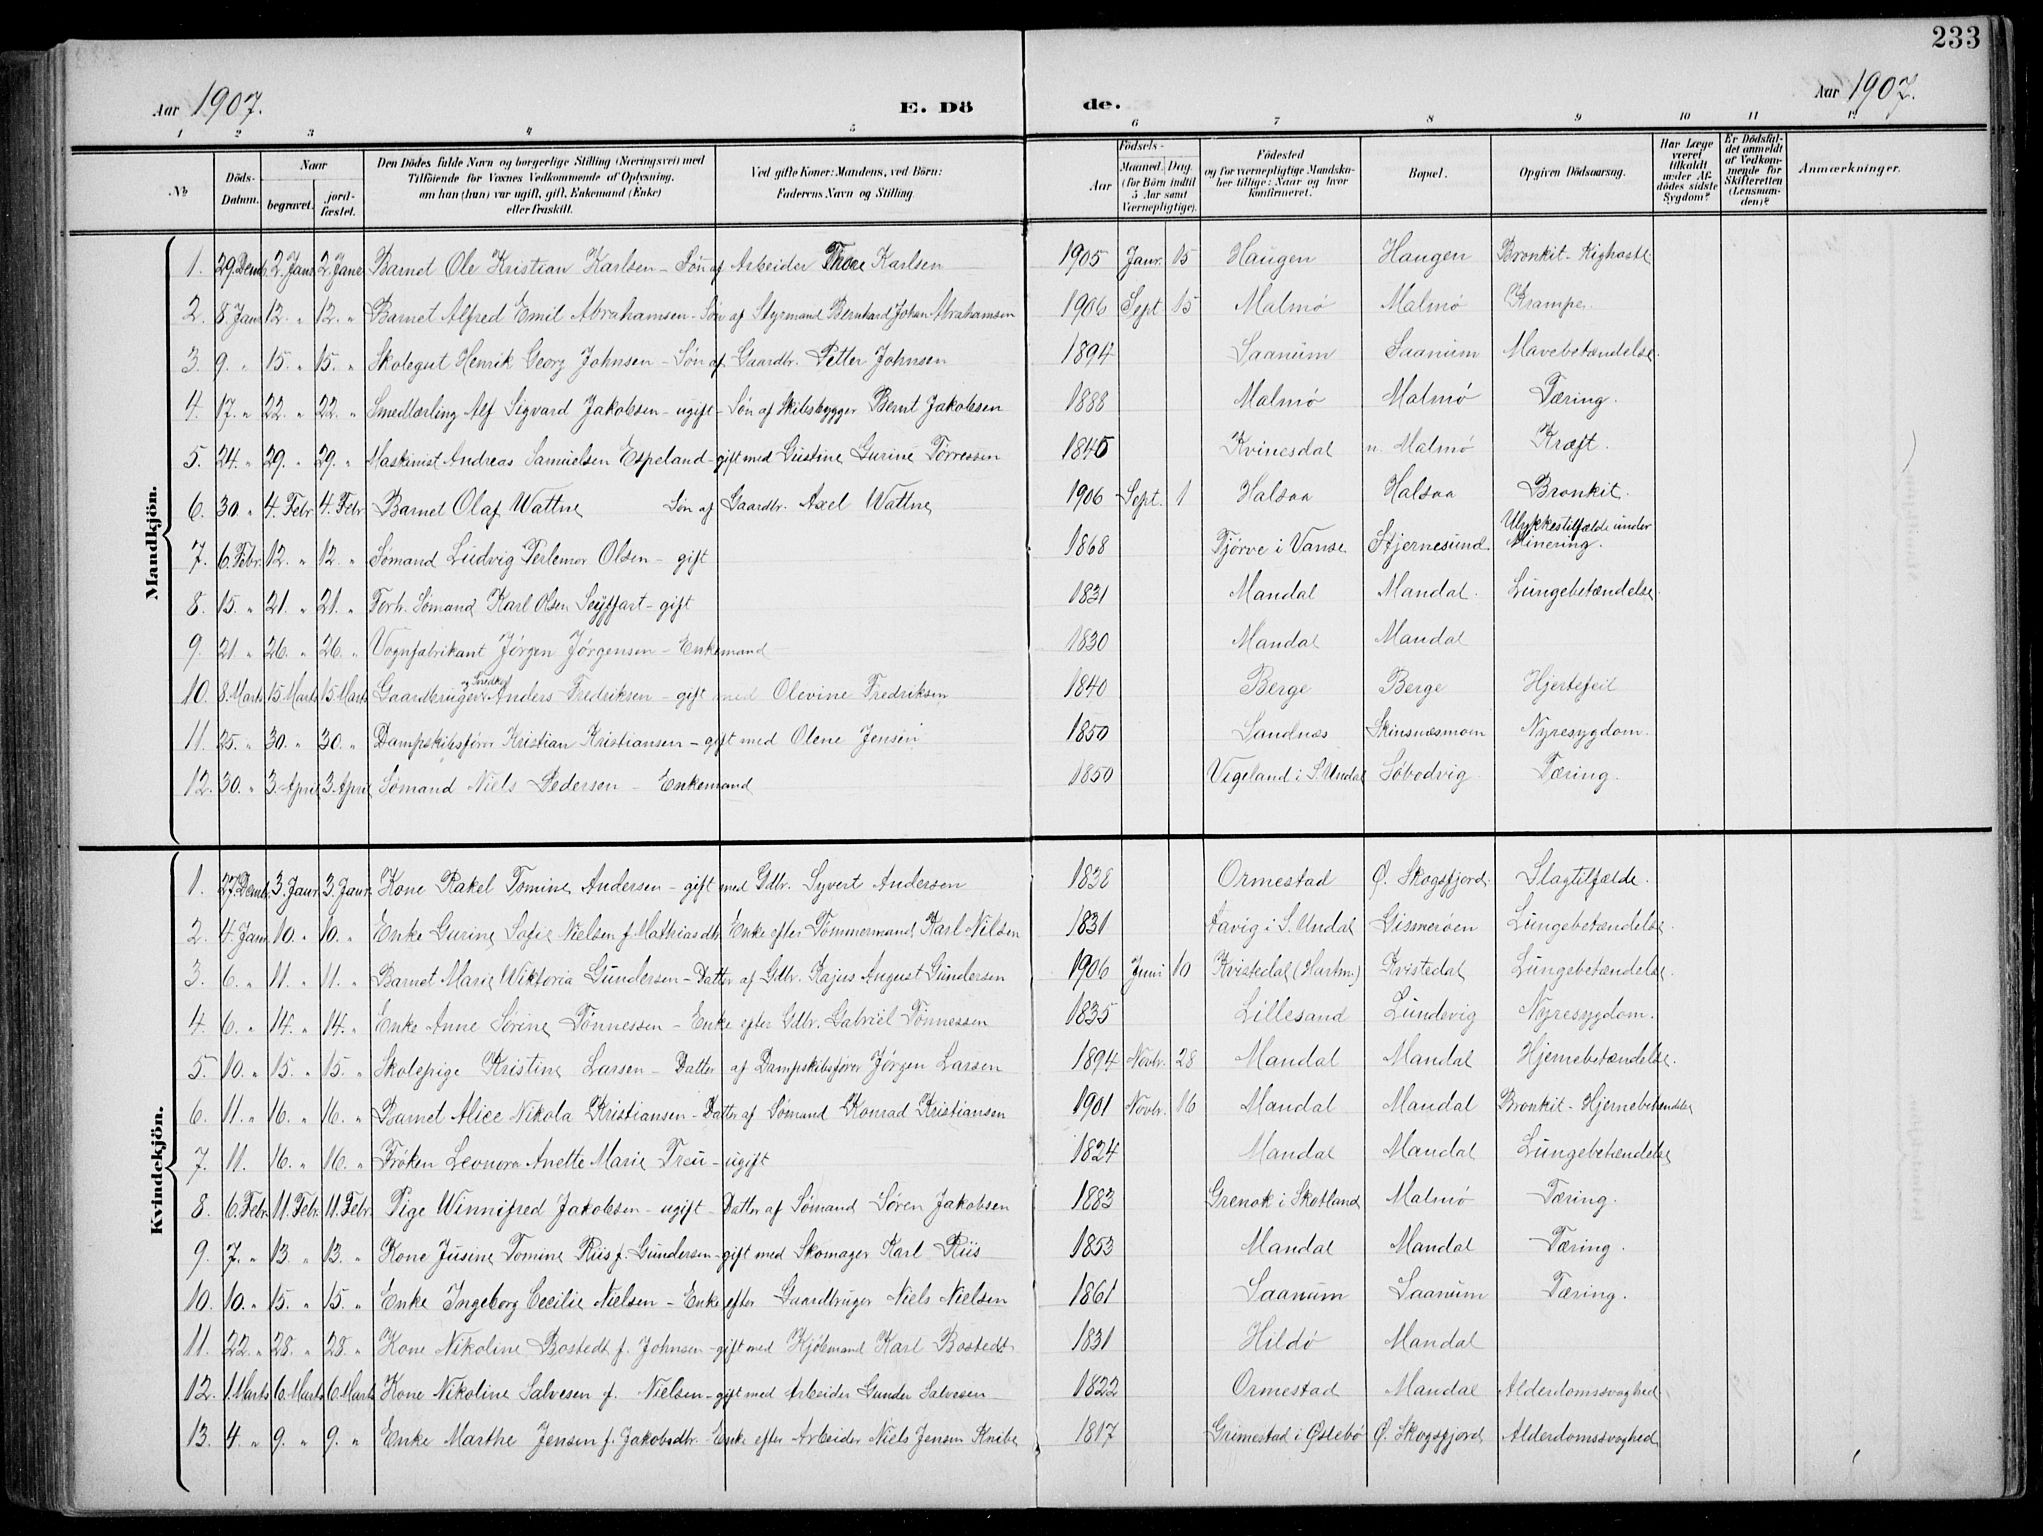 233
Aar 1907. E. Dö de. Aar 1907.
1 2 3 4 5 6 7 8 9 10 11 12
No
Döds-Datum.
Naar
begravet.
jord-fæstet.
Den Dödes fulde Navn og borgerlige Stilling (Næringsvei) med
Tilföiende for Voxnes Vedkommende af Oplysning,
om han (hun) var ugift, gift, Enkemand (Enke)
eller fraskilt.
Ved gifte Koner: Mandens, ved Börn:
Faderens Navn og Stilling.
Födsels-
Aar
Maaned. Dag.
(for Börn indtil
5 Aar samt
Værnepligtige).
Födested
og for værnepligtige Mandskaber tillige: Naar og hvor
konfirmeret.
Bopæl.
Opgiven Dödsaarsag.
Har Læge været tilkaldt under Afdödes sidste Sygdom?
Er Dödsfaldet anmeldt af Vedkommende for Skifteretten (Lensmanden)?
Anmærkninger.
Mandkjön.
1. 29. Decmb. 2. Janr. 2. Janr. Barnet Ole Kristian Karlsen - Søn af Arbeider Thore Karlsen 1905 Janr. 15 Haugen Haugen Bronkit - Kighoste
2. 8. Janr. 12. " 12. " Barnet Alfred Emil Abrahamsen - Søn af Styrmand Bernhard Johan Abrahamsen 1906 Sept. 15 Malmø Malmø Krampe.
3. 9. " 15. " 15. " Skolegut Henrik Georg Johnsen - Søn af Gaardbr. Petter Johnsen 1894 Saanum Saanum Mavebetændelse.
4. 17. " 22. " 22. " Smedlærling Alf Sigvard Jakobsen - ugift - Søn af Skibsbygger Bernt Jakobsen 1888 Malmø Malmø Tæring.
5. 24. " 29. " 29. " Maskinist Andreas Samuelsen Espeland - gift med Gustine Gurine Tørressen 1845 Kvinesdal n. Malmø Kræft.
6. 30 " 4. Febr. 4. Febr. Barnet Olaf Wattne Søn af Gaardbr. Axel Wattne 1906 Sept. 1 Halsaa Halsaa Bronkit.
7. 6. Febr. 12. " 12. " Sømand Ludvig Perlemor Olsen - gift 1868 Tjørve i Vanse Stjernesund Ulykkestilfælde under Minering.
8. 15. " 21. " 21. " Forh. Sømand Karl Olsen Seyffart - gift 1831 Mandal Mandal. Lungebetændelse.
9. 21. " 26. " 26. " Vognfabrikant Jørgen Jørgensen - Enkemand 1830 Mandal Mandal
10. 8. Marts 15. Marts 15. Marts Gaardbruger og Snedker Anders Fredriksen - gift med Olevine Fredriksen 1840 Berge Berge Hjertefeil
11. 25. " 30. " 30. " Dampskibsfører Kristian Kristiansen - gift med Olene Jensen 1850 Sandnæs Skinsnæsmoen Nyresygdom.
12. 30. " 3. April 3. April Sømand Niels Pedersen - Enkemand 1850 Vigeland i S. Undal Søbodvig Tæring.
Kvindekjön.
1. 27. Decmb. 3. Janr. 3. Janr. Kone Rakel Tomine Andersen - gift med Gdbr. Syvert Andersen 1838 Ormestad Ø. Skogsfjord Slagtilfælde.
2. 4. Janr. 10. " 10. " Enke Gurine Sofie Nielsen f. Mathiasdtr. Enke efter Tømmermand Karl Nilsen 1831 Aavig i S. Undal Gismerøen Lungebetændelse.
3. 6. " 11. " 11. " Barnet Marie Wiktoria Gundersen - Datter af Gdbr. Kajus August Gundersen 1906 Juni 10 Kvistedal (Hartm.) Kvistedal Lungebetændelse.
4. 6. " 14. " 14. " Enke Anne Sørine Tønnessen - Enke efter Gdbr. Gabriel Tønnessen 1835 Lillesand Lundevig Nyresygdom.
5. 10. " 15. " 15. " Skolepige Kristine Larsen - Datter af Dampskibsfører Jørgen Larsen 1894 Novbr. 28 Mandal Mandal Hjernebetændelse.
6. 11. " 16. " 16. " Barnet Alice Nikola Kristiansen - Datter af Sømand Konrad Kristiansen 1901 Novbr. 16 Mandal Mandal Bronkit - Hjernebetændelse
7. 11. 16. " 16. " Frøken Leonora Anette Marie Treu - ugift 1824 Mandal Mandal Lungebetændelse
8. 6. Febr. 11. Febr. 11. Febr. Pige Winnifred Jakobsen - ugift - Datter af Sømand Søren Jakobsen 1883 Grenok i Skotland Malmø Tæring.
9. 7. " 13. " 13. " Kone Jusine Tomine Riis f. Gundersen - gift med Skomager Karl Riis 1853 Mandal Mandal Tæring.
10. 10. " 15. " 15. " Enke Ingeborg Cecilie Nielsen - Enke efter Gaardbruger Niels Nielsen 1861 Saanum Saanum Tæring.
11. 22. " 28. " 28. " Kone Nikoline Bostedt f. Johnsen - gift med Kjøbmand Karl Bostedt 1831 Hildø Mandal
12. 1. Marts 6. Marts 6. Marts Kone Nikoline Salvesen f. Nielsen - gift med Arbeider Gunder Salvesen 1822 Ormestad Mandal Alderdomssvaghed
13. 4. " 9. " 9. " Enke Marthe Jensen f. Jakobsdtr. Enke efter Arbeider Niels Jensen Knibe 1817 Grimestad i Øslebø Ø. Skogsfjord Alderdomssvaghed